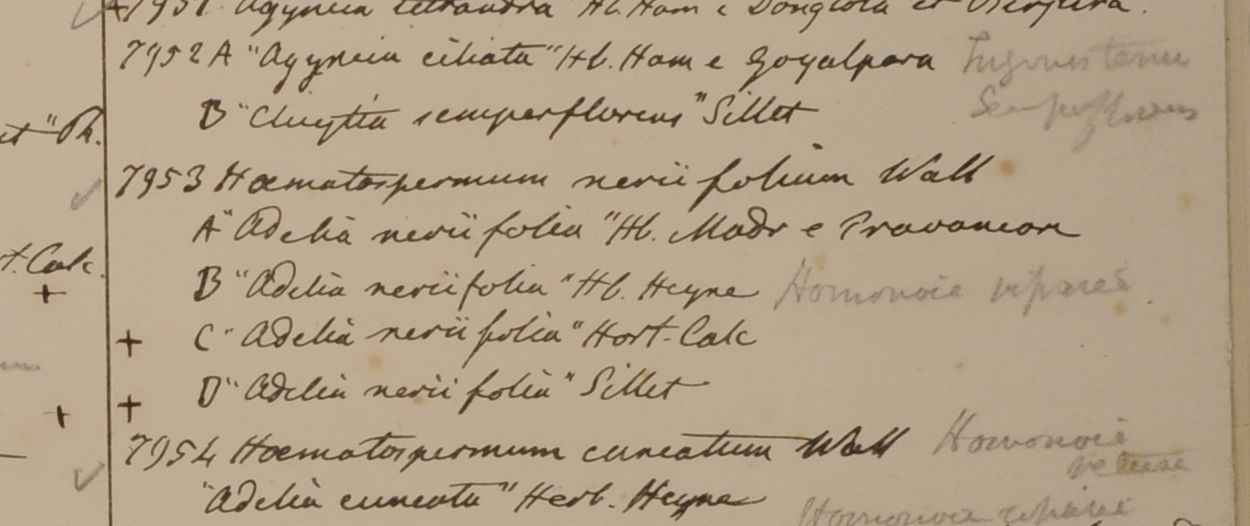 7951 Agyneia tetrandra Hb. Ham e Donglola et
7952 A "Agyneia ciliata" Hb. Ham e Goyalpara
B "Cluytia semperflorens" Sillet
semperflorens
et "Ph.
7953 Hæmatospermum neriifolium Wall
A "Adelia neriifolia" Hb. Madr e Travancore
t. Calc.
B "Adelia neriifolia" Hb. Heyne Homonoia riparia
+ C "Adelia neriifolia" Hort. Calc
+ D "Adelia neriifolia" Sillet
7954 Hæmatospermum cuneatum Wall Homonoia
retusa
"Adelia cuneata" Herb. Heyne Homonoia riparia